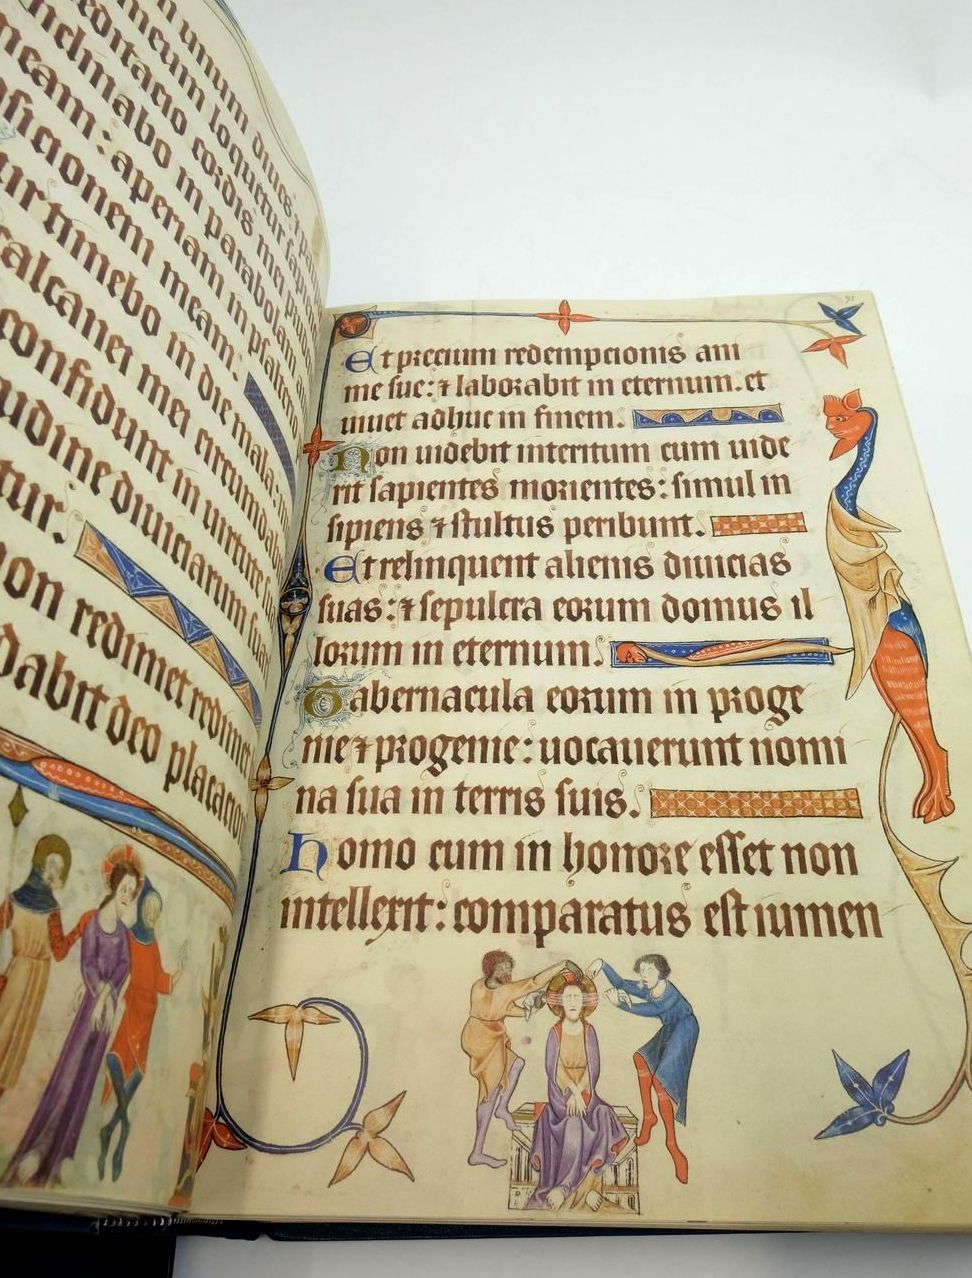 unum diues & pau
meum loquetur
cordis mei
in parabolam
meam: aperiam in psalterio
meam.
timebo in die mala:
calcanei mei circumdabit
confidunt in uirtute
diuiciarum
non redimet
dabit deo
Et precium redempcionis ani
me sue: & laborabit in eternum. et
uiuet adhuc in finem.
Non uidebit interitum cum uide
rit sapientes morientes: simul in
sipiens & stultus peribunt.
Et relinquent alienis diuicias
suas: & sepulcra eorum domus il
lorum in eternum.
Tabernacula eorum in proge
nie & progenie: uocauerunt nomi
na sua in terris suis.
Homo cum in honore esset non
intellexit: comparatus est iumen